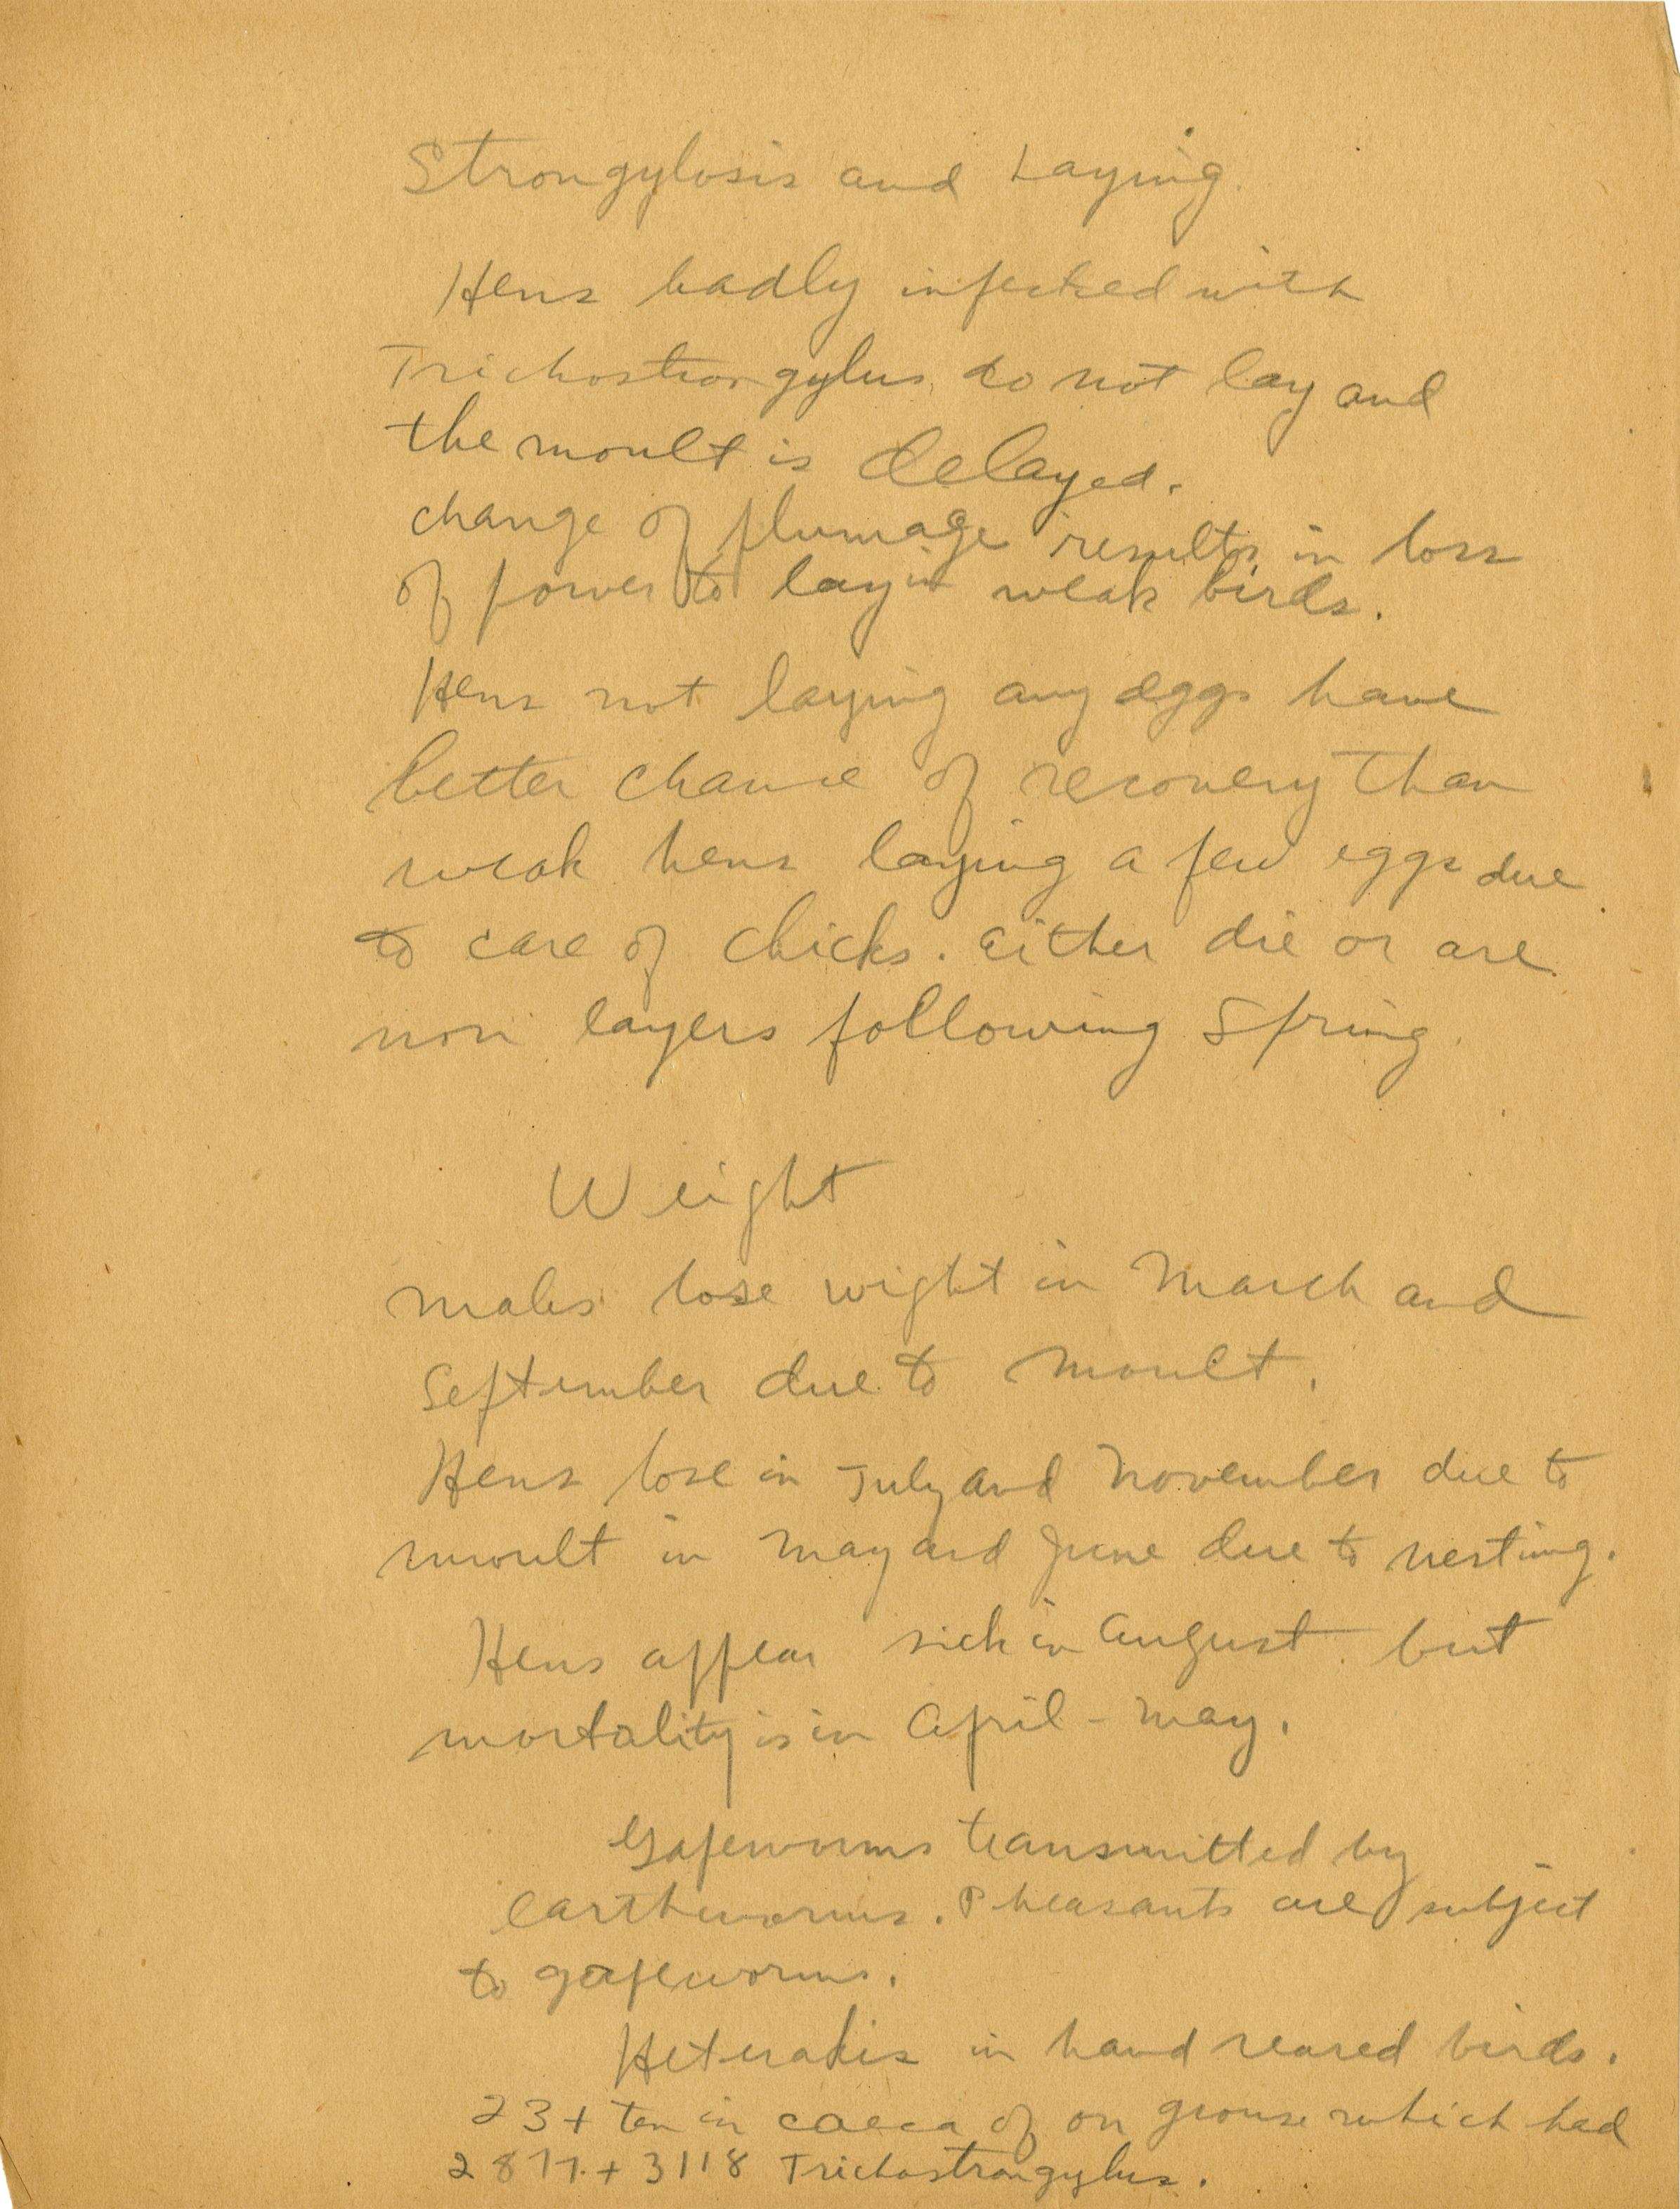 Strongylosis and Laying.
Hens badly infected with
Trichostrongylus do not lay and
the moult is delayed.
change of plumage results in loss
of power to lay in weak birds.
Hens not laying any eggs have
better chance of recovery than
weak hens laying a few eggs due
to care of chicks. Either die or are
non layers following Spring.
Weight
males lose wight in March and
September due to moult.
Hens lose in July and November due to
moult in May and June due to nesting.
Hens appear sick in August but
mortality is in April - May.
Gapeworms transmitted by
earthworms. Pheasants are subject
to gapeworms.
Heterakis in hand reared birds.
23 + ten in caeca of on grouse which had
2877 + 3118 Trichostrongylus.